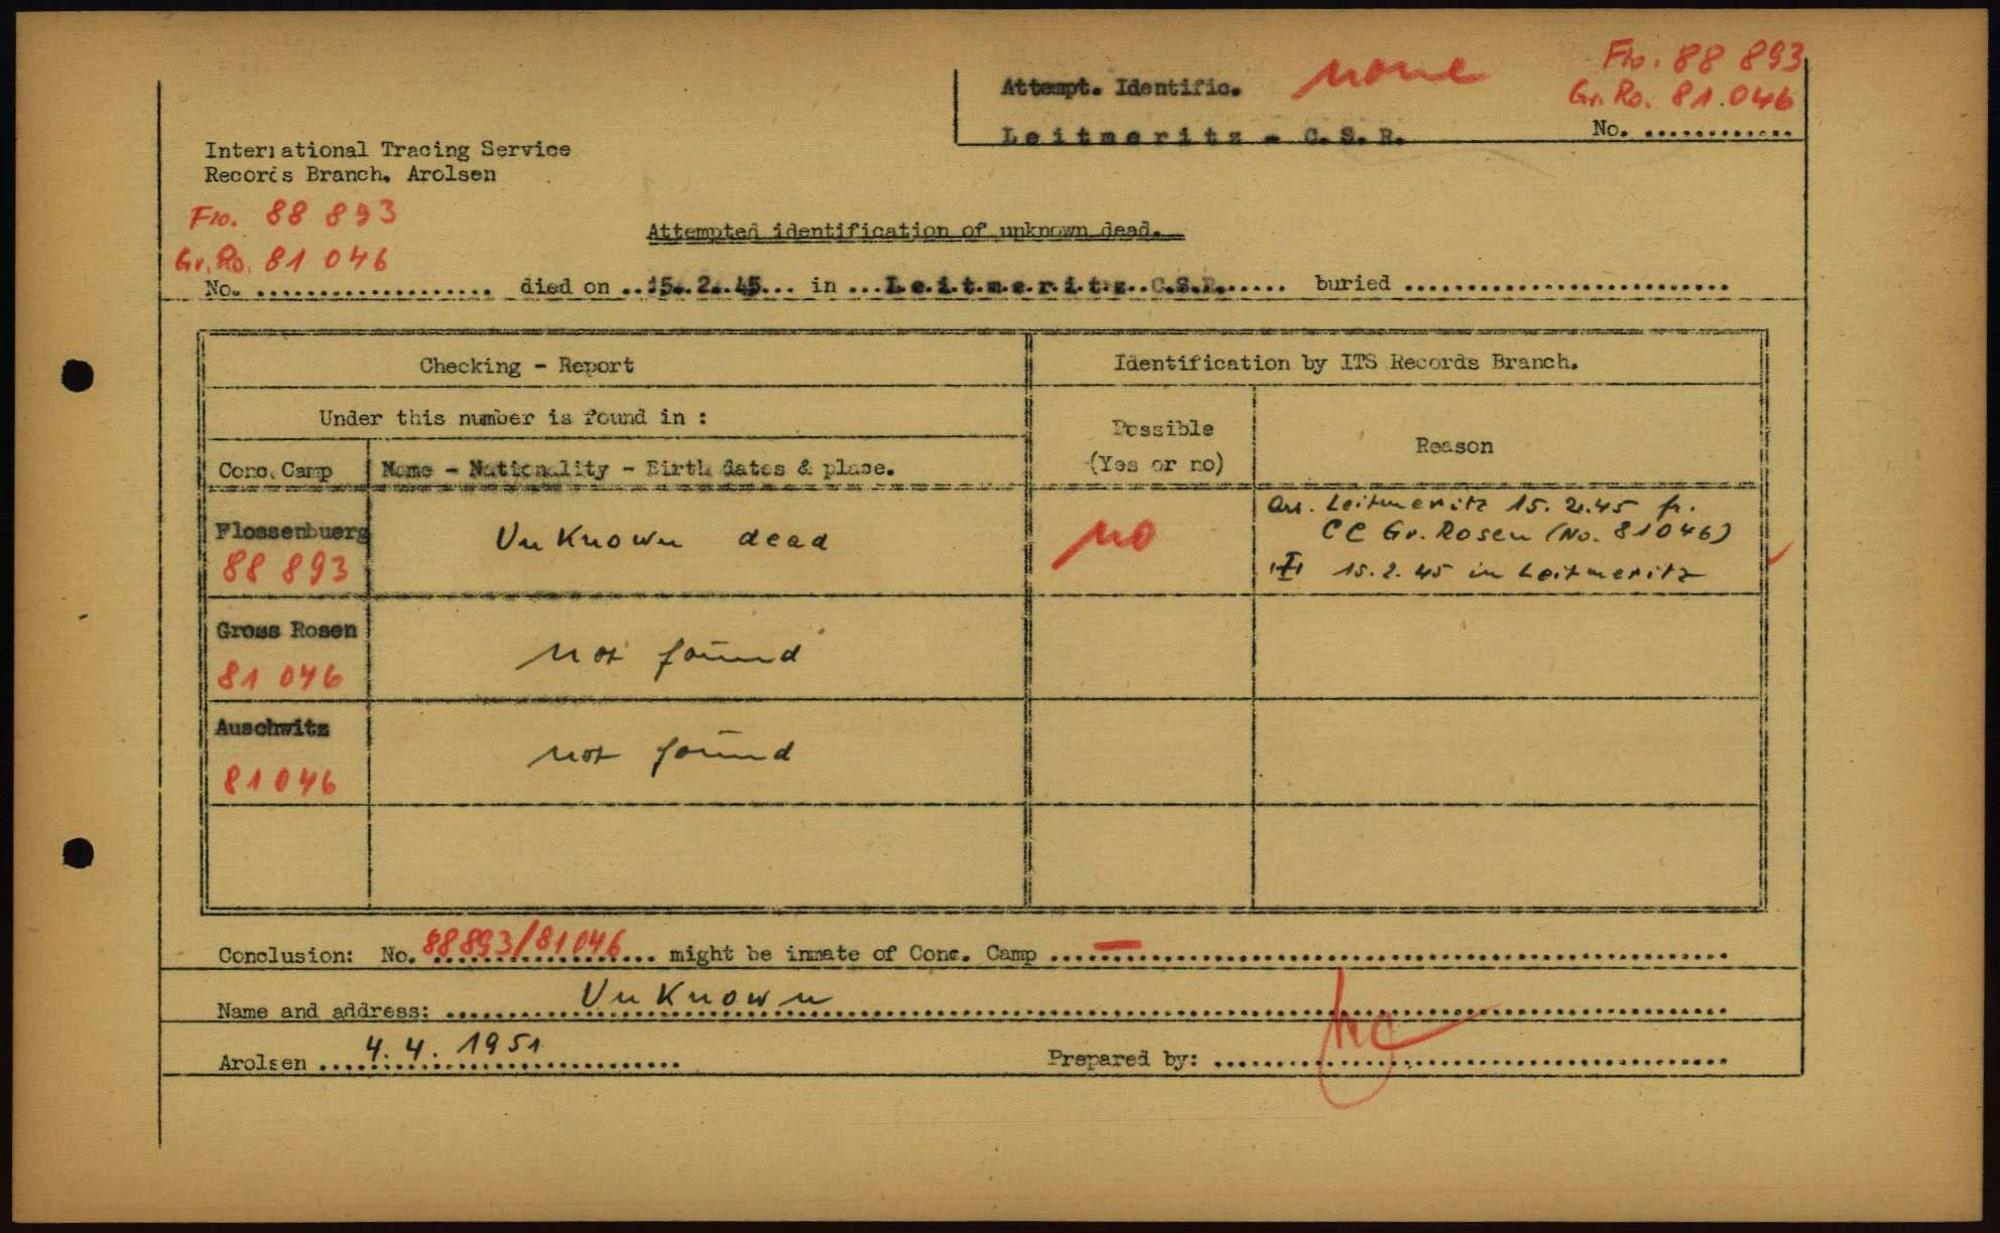 Attempt. Identific. none
Flo. 88 893
Gr. Ro. 81.046
Leitmeritz - C.S.R. No. .............
International Tracing Service
Records Branch, Arolsen
Flo. 88 893
Gr. Ro. 81 046
Attempted identification of unknown dead.
No. .................... died on ..15..2..45... in ...L.e.i.t.m.e.r.i.t.z..C.S.R....... buried ..........................
Checking - Report
Identification by ITS Records Branch.
Under this number is found in :
Possible
(Yes or no)
Reason
Conc. Camp
Name - Nationality - Birth dates & place.
Flossenbuerg
88 893
Unknown dead
no
arr. Leitmeritz 15.2.45 fr.
CC Gr. Rosen (No. 81046)
15.2.45 in Leitmeritz
Gross Rosen
81 046
not found
Auschwitz
81046
not found
Conclusion: No. 88893/81046 ... might be inmate of Conc. Camp ....—....
Name and address: ....Unknown....
Arolsen ....4.4.1951....
Prepared by: ....